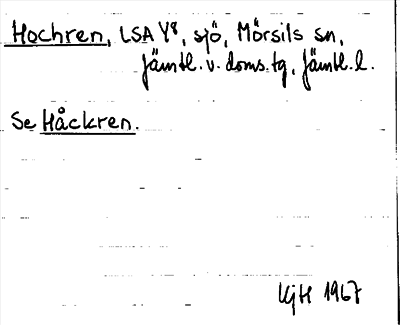 Hochren, LSA Y8, sjö, Mörsils sn,
Jämtl. v. doms.tg, Jämtl. l.
Se Håckren.
KjH 1967